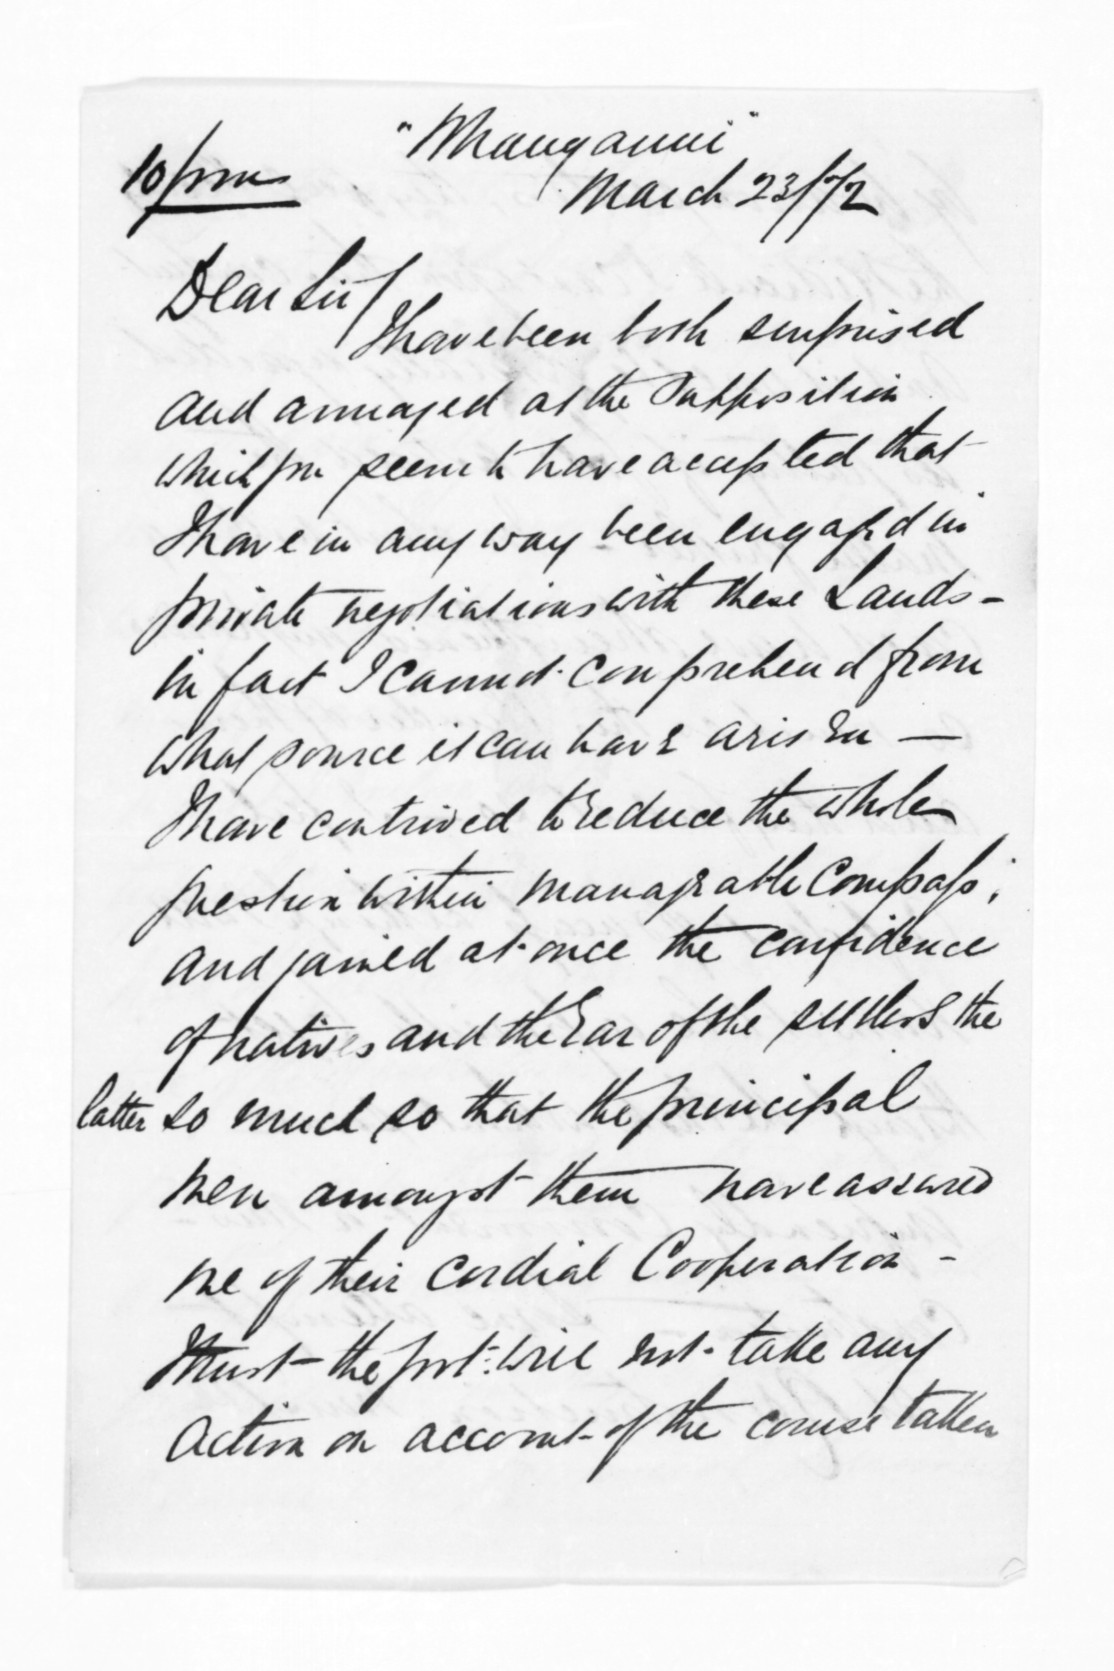 "Whanganui"
10/pm
March 23/72
Dear Sir/
I have been both surprised
and annoyed at the supposition
which you seem to have accepted that
I have in any way been engaged in
private negotiations with these Lands -
in fact I cannot comprehend from
what source it can have arisen —
I have contrived to reduce the whole
question within manageable compass;
and gained at once the confidence
of natives and the Ear of the settlers the
latter so much so that the principal
men amongst them have assured
me of their cordial Cooperation -
I trust - the govt: will not take any
action on account of the course taken